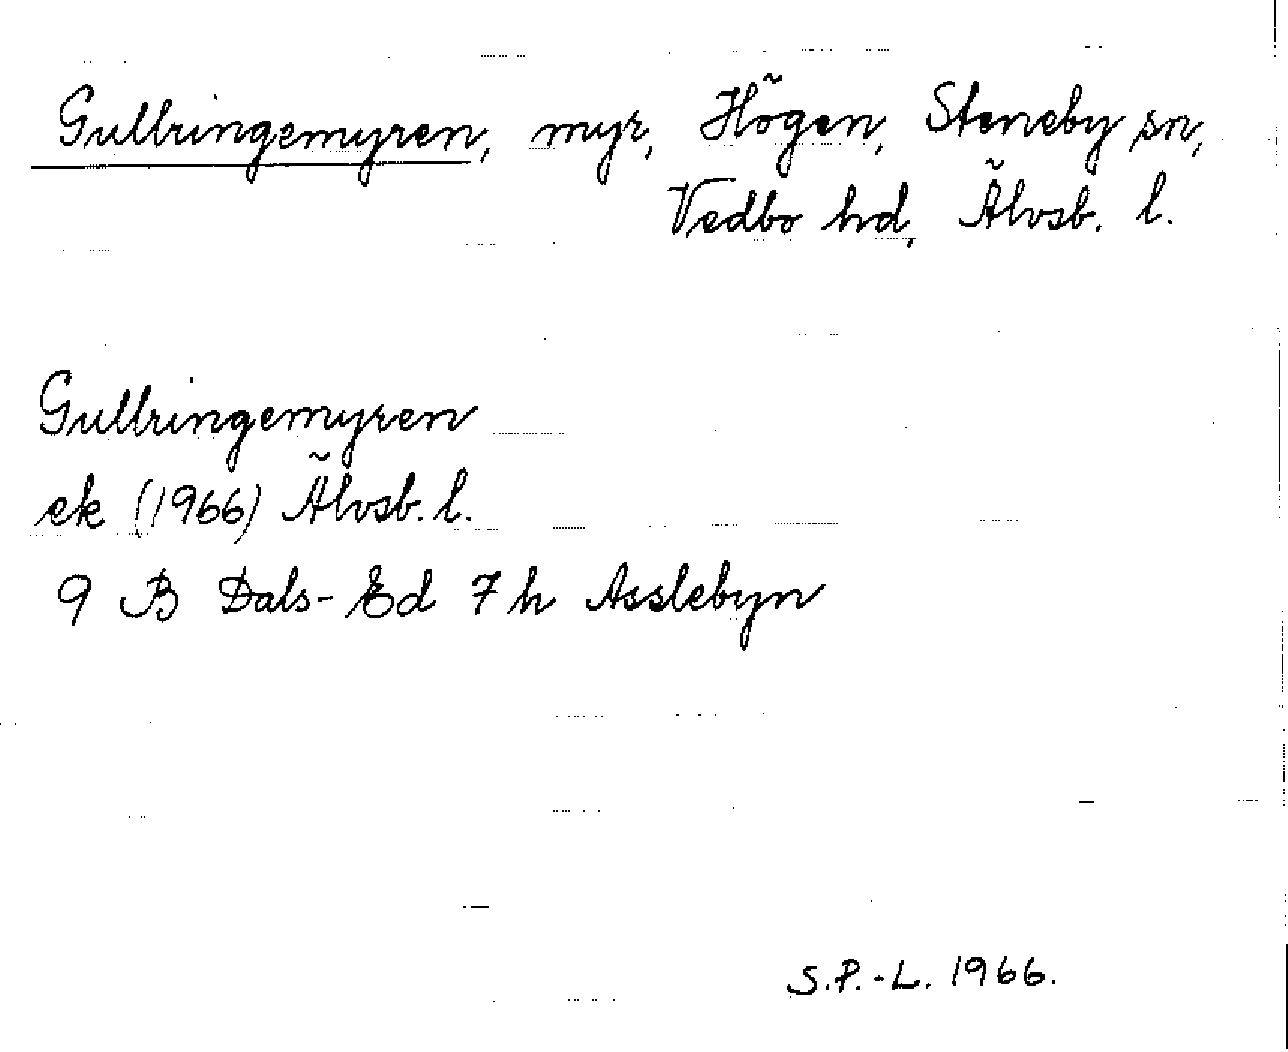 Gullringemyren, myr, Högen, Steneby sn,
Vedbo hd, Älvsb. l.
Gullringemyren
ek (1966) Älvsb. l.
9 B Dals-Ed 7 h Asslebyn
S.P.-L. 1966.